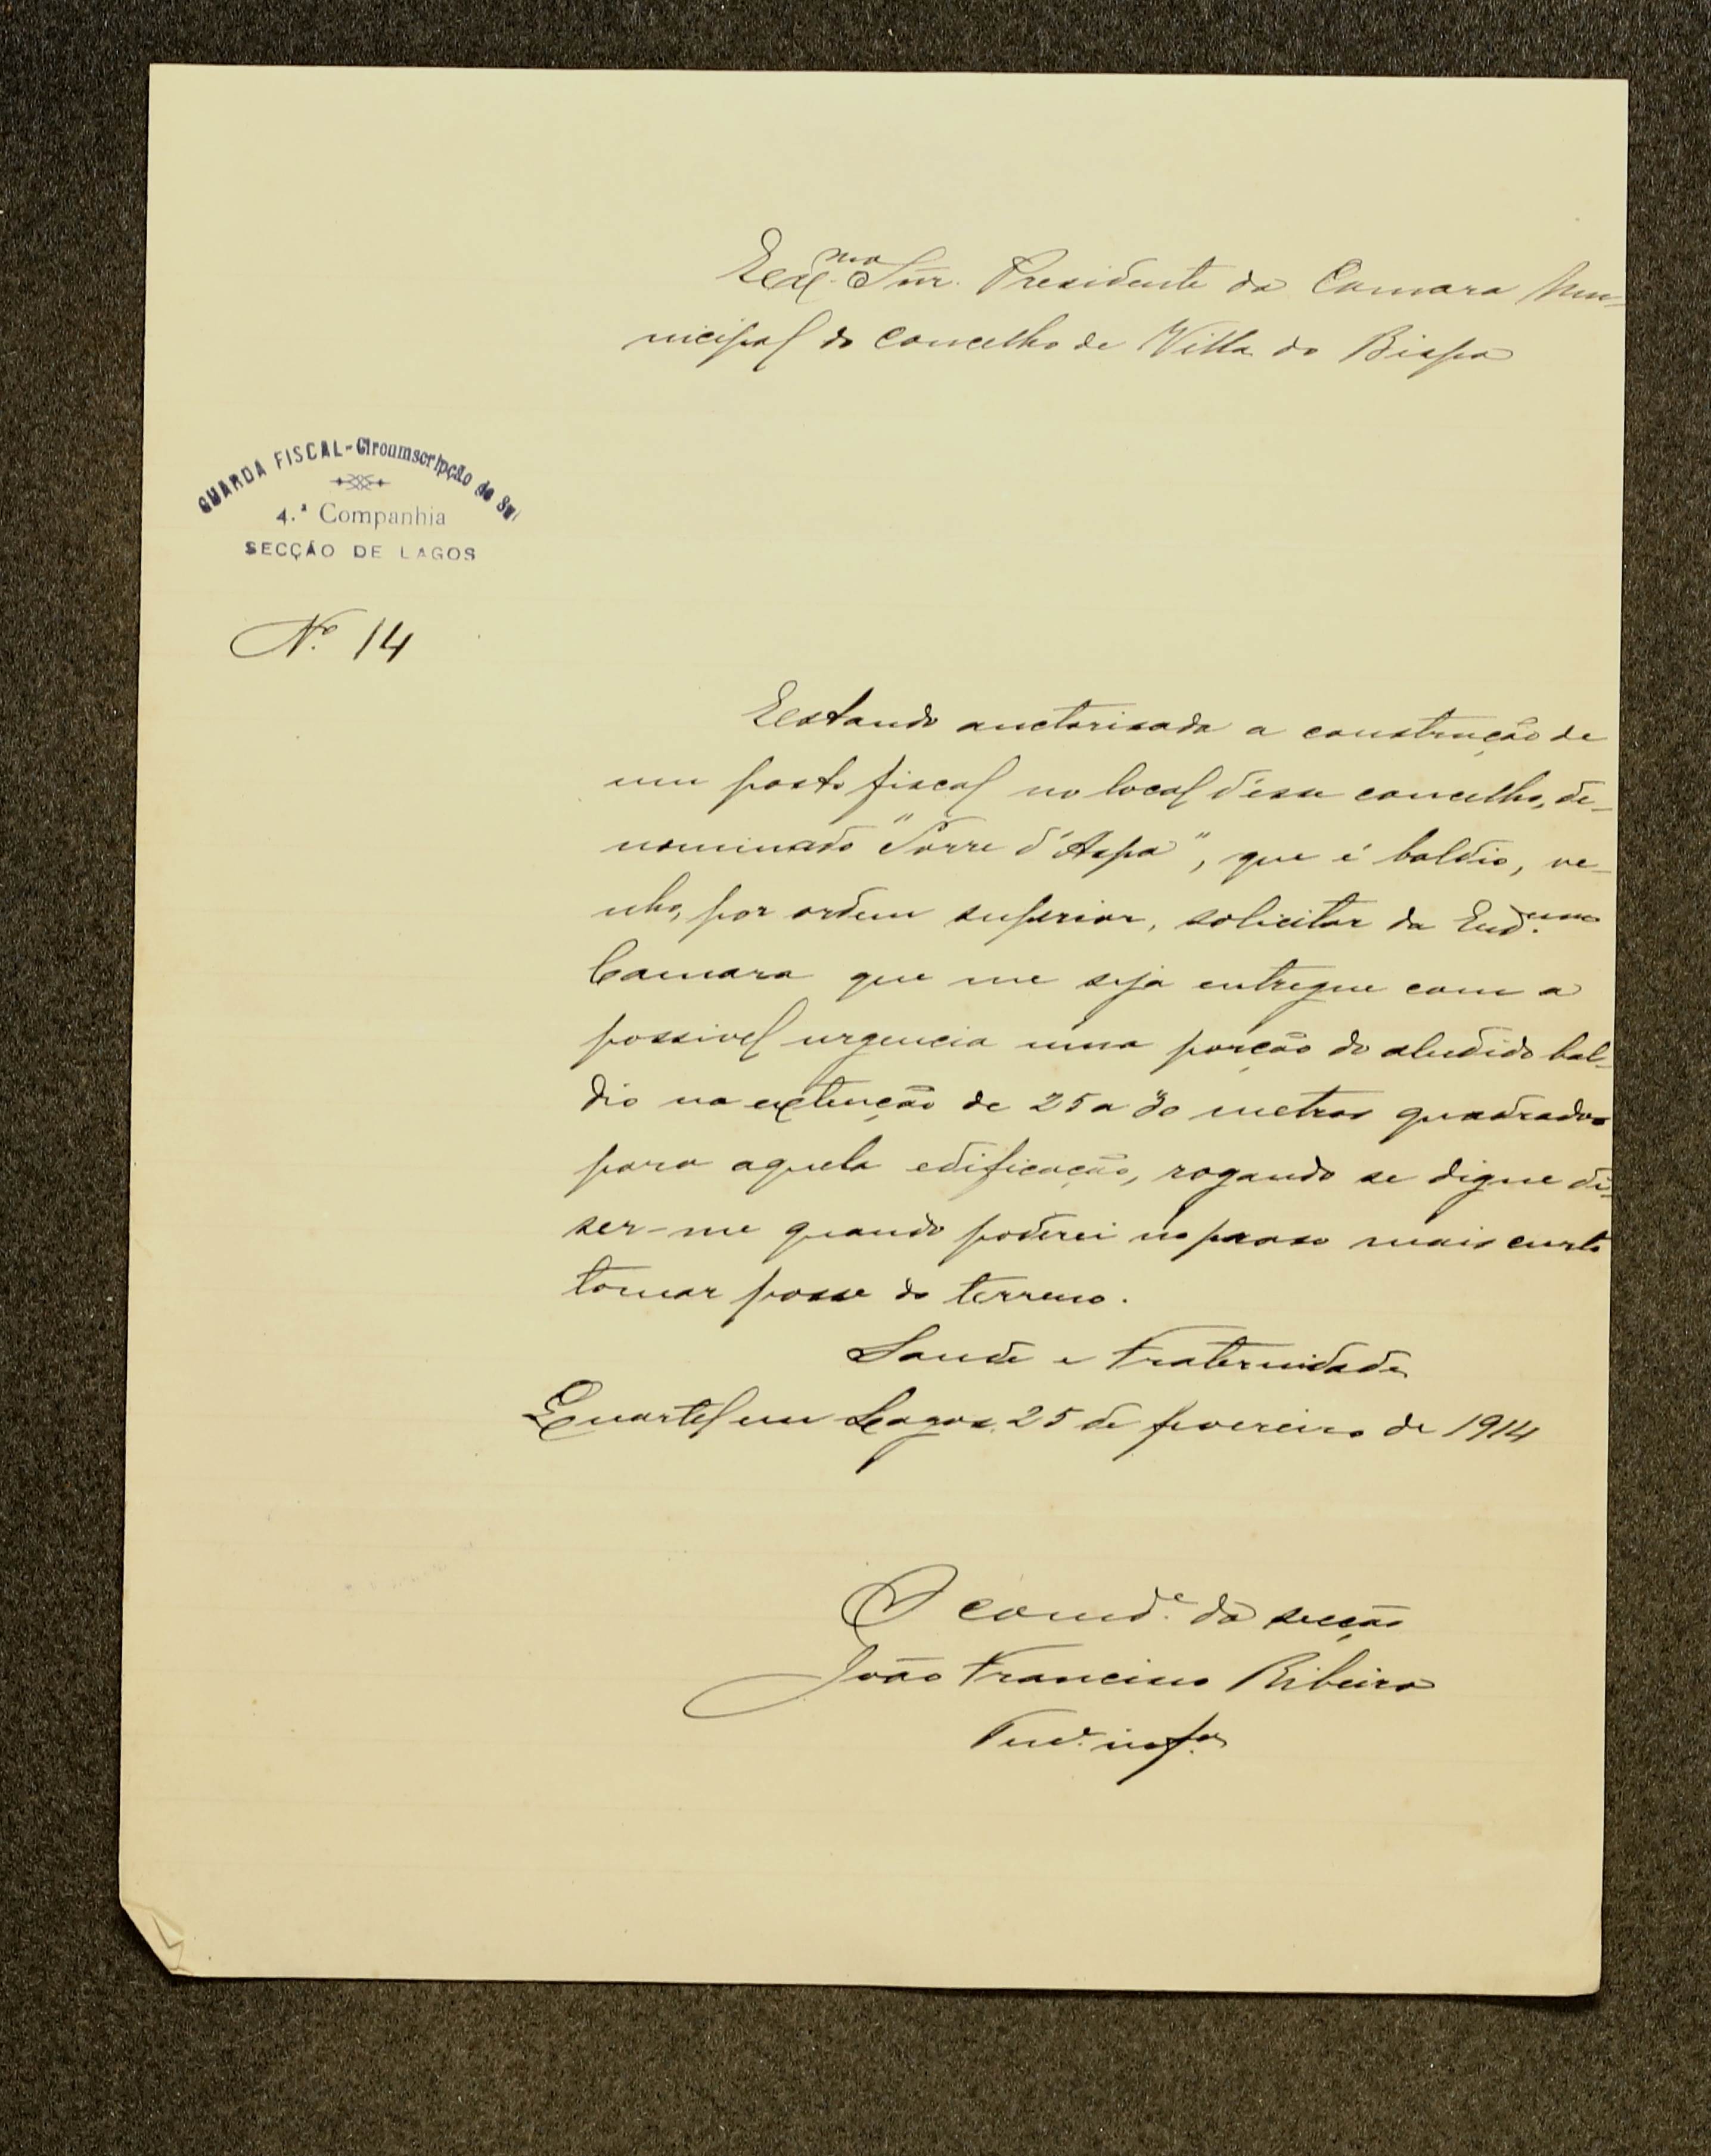 Ex.mo Snr. Presidente da Camara Mu-
nicipal do concelho de Villa do Bispo
GUARDA FISCAL-Circumscripção do Sul
4.ª Companhia
SECÇÃO DE LAGOS
N.º 14
Estando auctorisada a construção de
um posto fiscal no local d'esse concelho, de-
nominado "Torre d'Aspa", que é baldio, ve-
nho, por ordem superior, solicitar da
Camara que me seja entregue com a
possivel urgencia uma porção do aludido bal-
dio na extenção de 25 a 30 metros quadrados
para aquela edificação, rogando se digne di-
ser-me quando poderei no praso mais curto
tomar posse do terreno.
Saude e Fraternidade
Quartel em Lagos, 25 de fevereiro de 1914
O comd.e da secção
João Francisco Ribeiro
Ten.e inf.ª